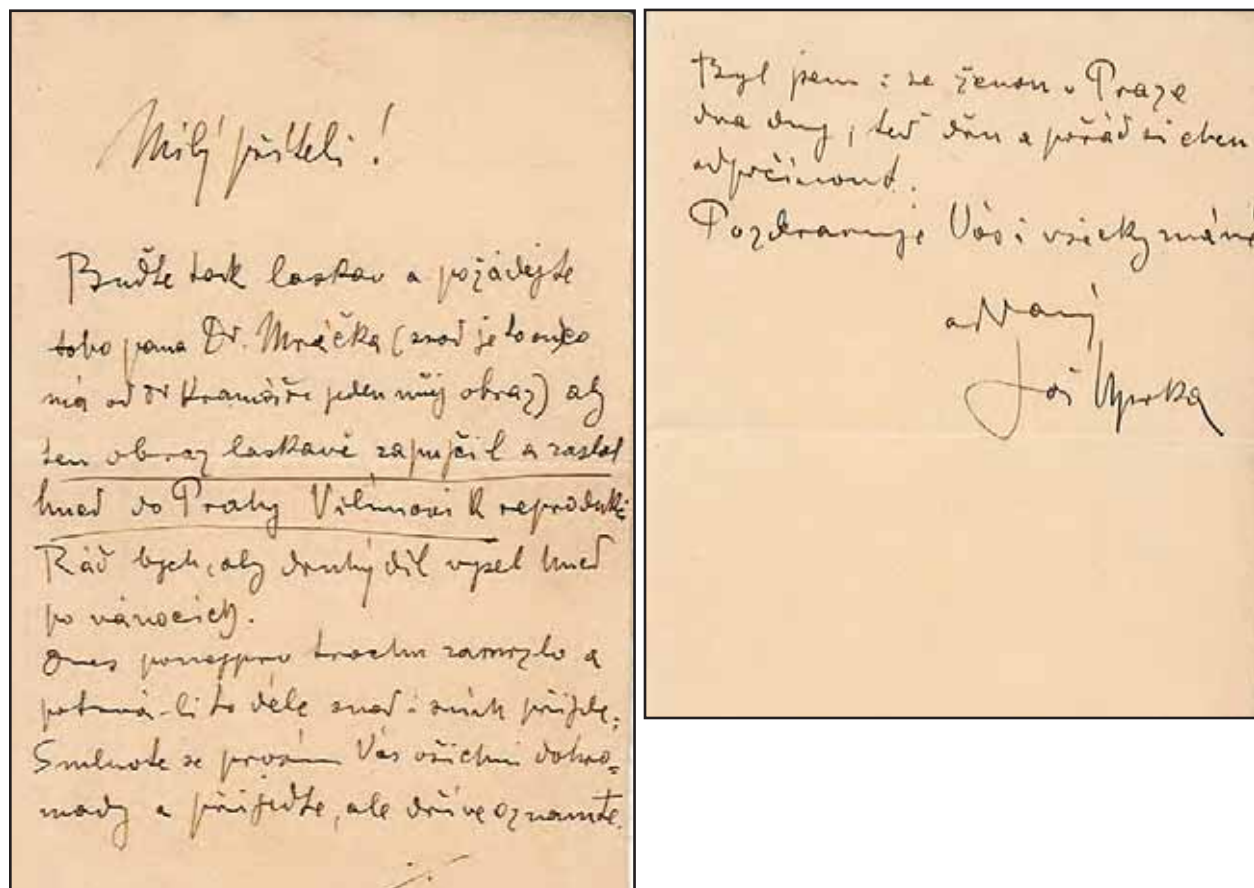 Milý příteli!
Buďte tak laskav a požádejte
toho pana Dr. Mráčka (snad je to on, co
má od Dr Kramáře jeden můj obraz) aby
ten obraz laskavě zapujčil a zaslal
hned do Prahy Vilímovi k reprodukci
Rád bych, aby druhý díl vyšel hned
po vánocích.
Dnes ponejprv trochu zamrzlo a
potrvá-li to déle snad i sníh přijde.
Smluvte se prosím Vás všichni dohro=
mady a přijeďte, ale dříve oznamte.
Byl jsem i se ženou v Praze
dva dny, teď a pořád si chcu
odpočinout.
Pozdravuje Vás i všecky známé
oddaný
Jož Uprka